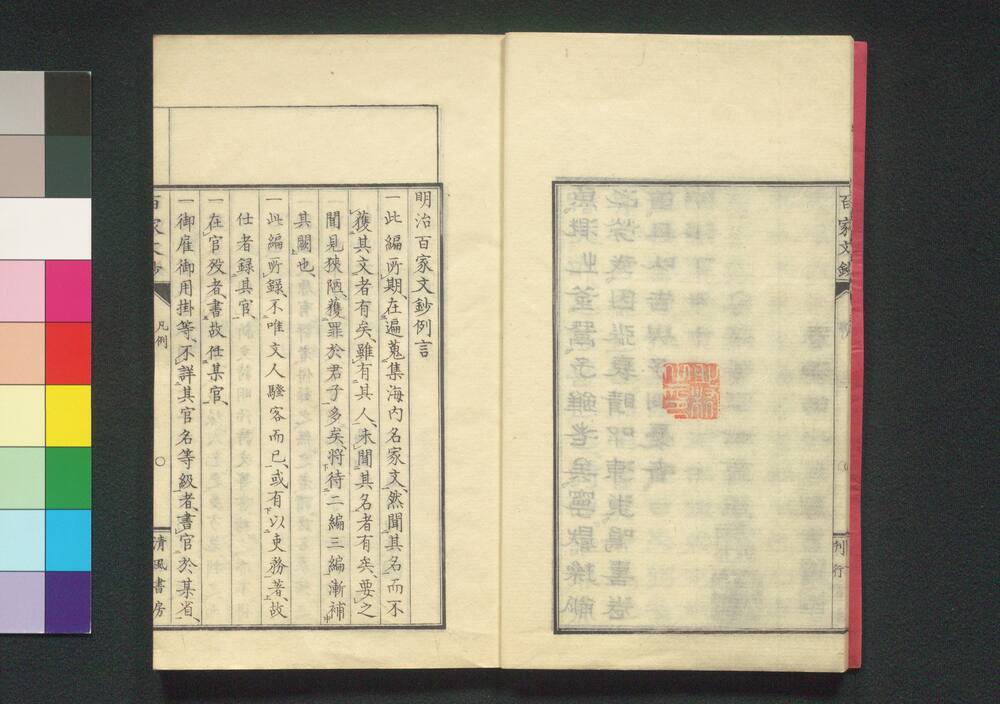 百家文鈔
刊行
明治百家文鈔例言
一此編所期、在遍蒐集海内名家文、然聞其名而不
獲其文者有矣、雖有其人、未聞其名者有矣、要之
聞見狹陋、獲罪於君子多矣、將待二編三編漸補
其闕也、
一此編所錄、不唯文人騷客而已、或有以吏務著、故
仕者錄其官、
一在官歿者、書故任某官、
一御雇御用掛等、不詳其官名等級者、書官於某省、
百家文鈔
凡例
清風書房